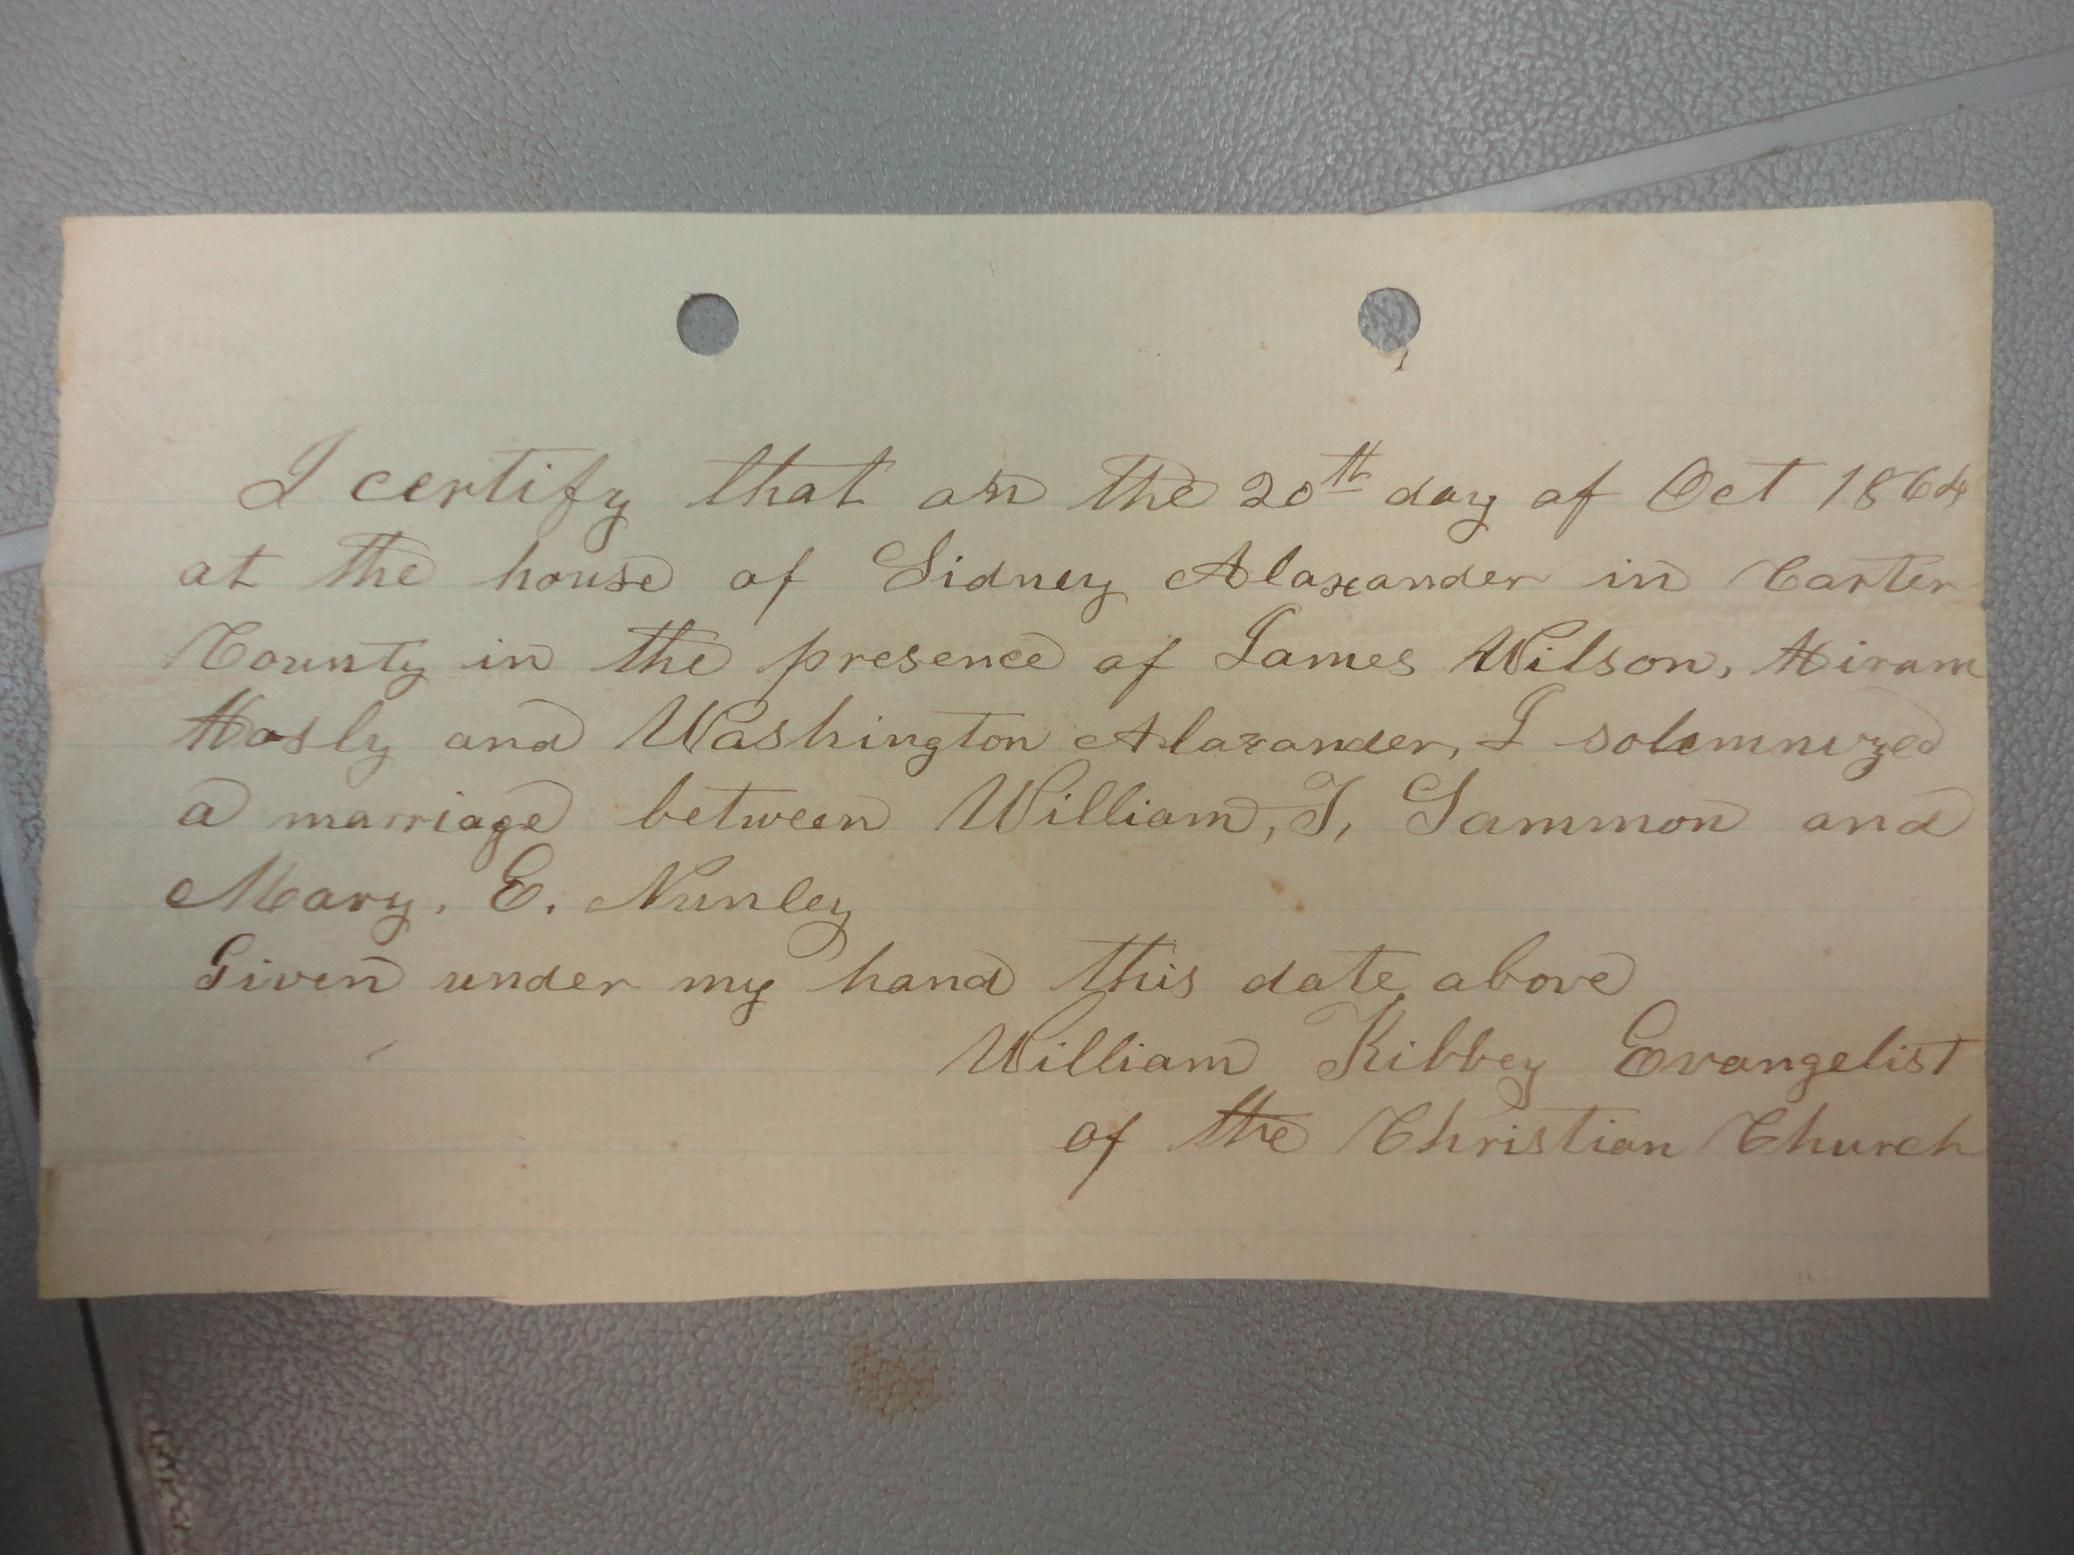 I certify that on the 20th day of Oct 1864
at the house of Sidney Alaxander in Carter
County in the presence of James Wilson, Hiram
Hosly and Washington Alaxander, I solemnized
a marriage between William, T, Sammon and
Mary. E. Nunley
Given under my hand this date above
William Kibbey Evangelist
of the Christian Church